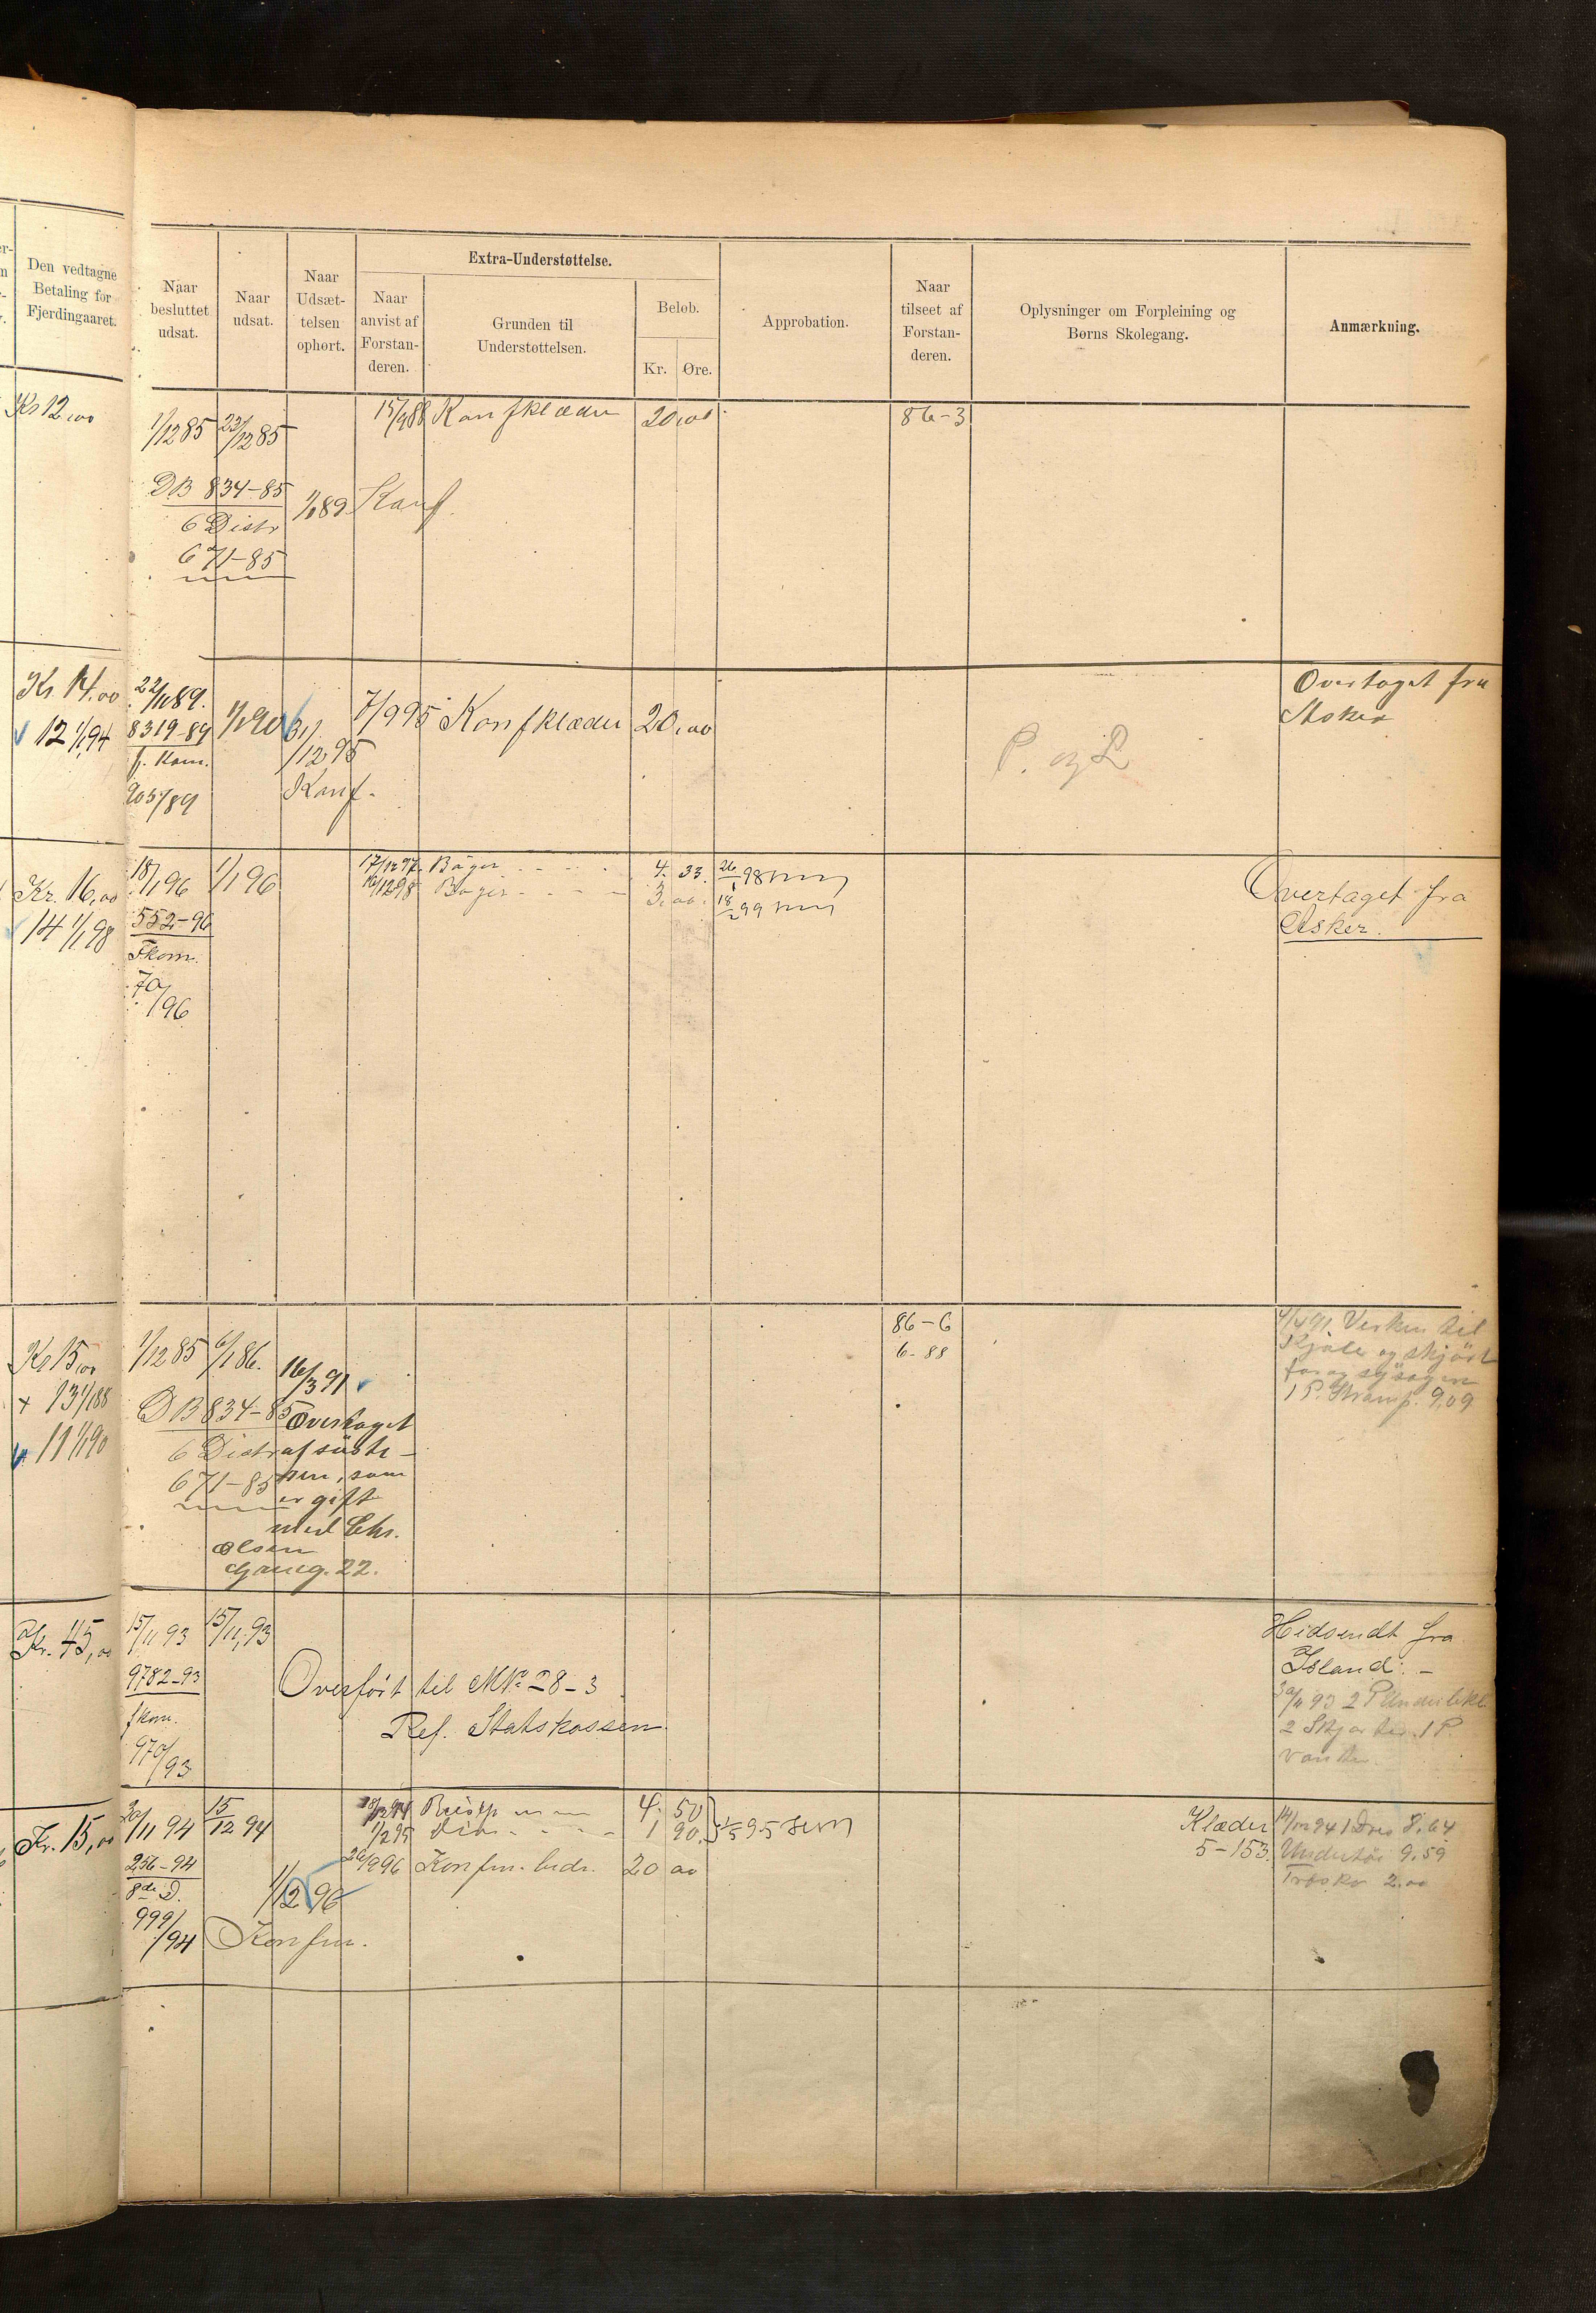 Den vedtagne
Betaling for
Fjerdingaaret.
Naar
besluttet
udsat.
Naar
udsat.
Naar
Udsæt-
telsen
ophørt.
Extra-Understøttelse.
Naar
anvist af
Forstan-
deren.
Grunden til
Understøttelsen.
Beløb.
Kr.
Øre.
Approbation.
Naar
tilseet af
Forstan-
deren.
Oplysninger om Forpleining og
Børns Skolegang.
Anmærkning.
Kr 12,00
1/12 85
22/12 85
15/9 88
Konfklæder
20,00
86-3
DB 834-85
6 Distr
671-85
1/1 89
Konf.
Kr. 14,00
12 1/1 94
22/11 89.
8319-89
f. Kom.
905/89
1/1 90
31/12 95
Konf.
7/9 95
Konfklæder
20,00
P. og L
Overtaget fra
Asker
Kr. 16,00
14 1/1 98
18/1 96
552-96
Fkom.
70/96
1/1 96
17/12 97.
Bøger
4. 33.
26/1 98
16/12 98
Bøger
3,00.
18/2 99
Overtaget fra
Asker.
Kr 15,00
+ 13 1/1 88
11 1/1 90
1/12 85
6/1 86.
16/3 91
DB 834-85
6 Distr
671-85
Overtaget
af søste-
ren, som
er gift
med Chr.
Olsen
Grueg. 22.
86-6
6-88
4/4 91 Verken til
Kjole og skjørt
1 P. Strømp. 9,09
Kr. 45,00
15/11 93
9782-93
fkom.
970/93
15/11 93
Overført til M No 28-3
Ref. Statskassen.
Hidsendt fra
Island. -
30/11 93 2 P Underbkl.
2 Skjorter. 1 P.
vanter.
Kr. 15,00
30/11 94
256-94
8de D.
999/94
15/12 94
1/12 96
Konfm.
18/12 94
4. 50
1/2 95
1 90.
26/9 96
Konfm.
20 00
Klæder
5-153.
14/12 94 1 Dres 8.64
Undertøi 9.59
Træsko 2.00